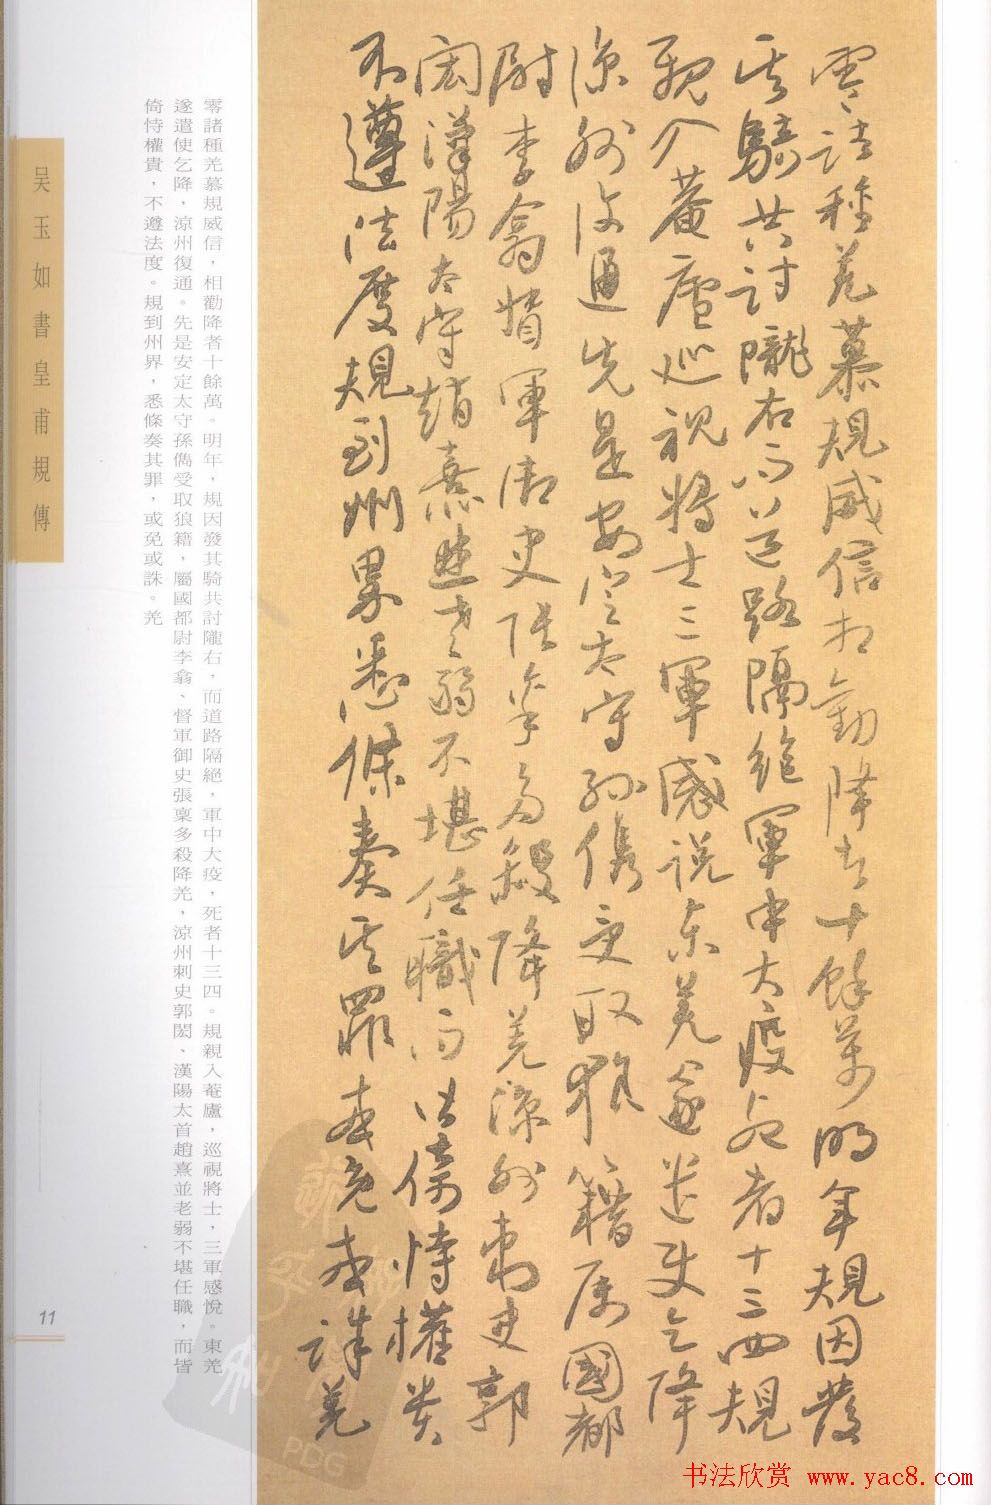 零諸種羌慕規威信相勸降者十餘萬明年規因發
其騎共討隴右而道路隔絶軍中大疫死者十三四規
親入菴廬巡視將士三軍感説東羌遂遣使乞降
涼州復通先是安定太守孫儁受取狼籍属國都
尉李翕督軍御史張稟多殺降羌涼州刺史郭
閎漢陽太守趙熹並老弱不堪任職而皆倚恃權貴
不遵法度規到州界悉條奏其罪或免或誅羌
零諸種羌慕規威信，相勸降者十餘萬。明年，規因發其騎共討隴右，而道路隔絕，軍中大疫，死者十三四。規親入菴廬，巡視將士，三軍感悅。東羌
遂遣使乞降，涼州復通。先是安定太守孫儁受取狼籍，屬國都尉李翕、督軍御史張稟多殺降羌，涼州刺史郭閎、漢陽太首趙熹並老弱不堪任職，而皆
倚恃權貴，不遵法度。規到州界，悉條奏其罪，或免或誅。羌
吴玉如書皇甫規傳
11
PDG
书法欣赏 www.yac8.com